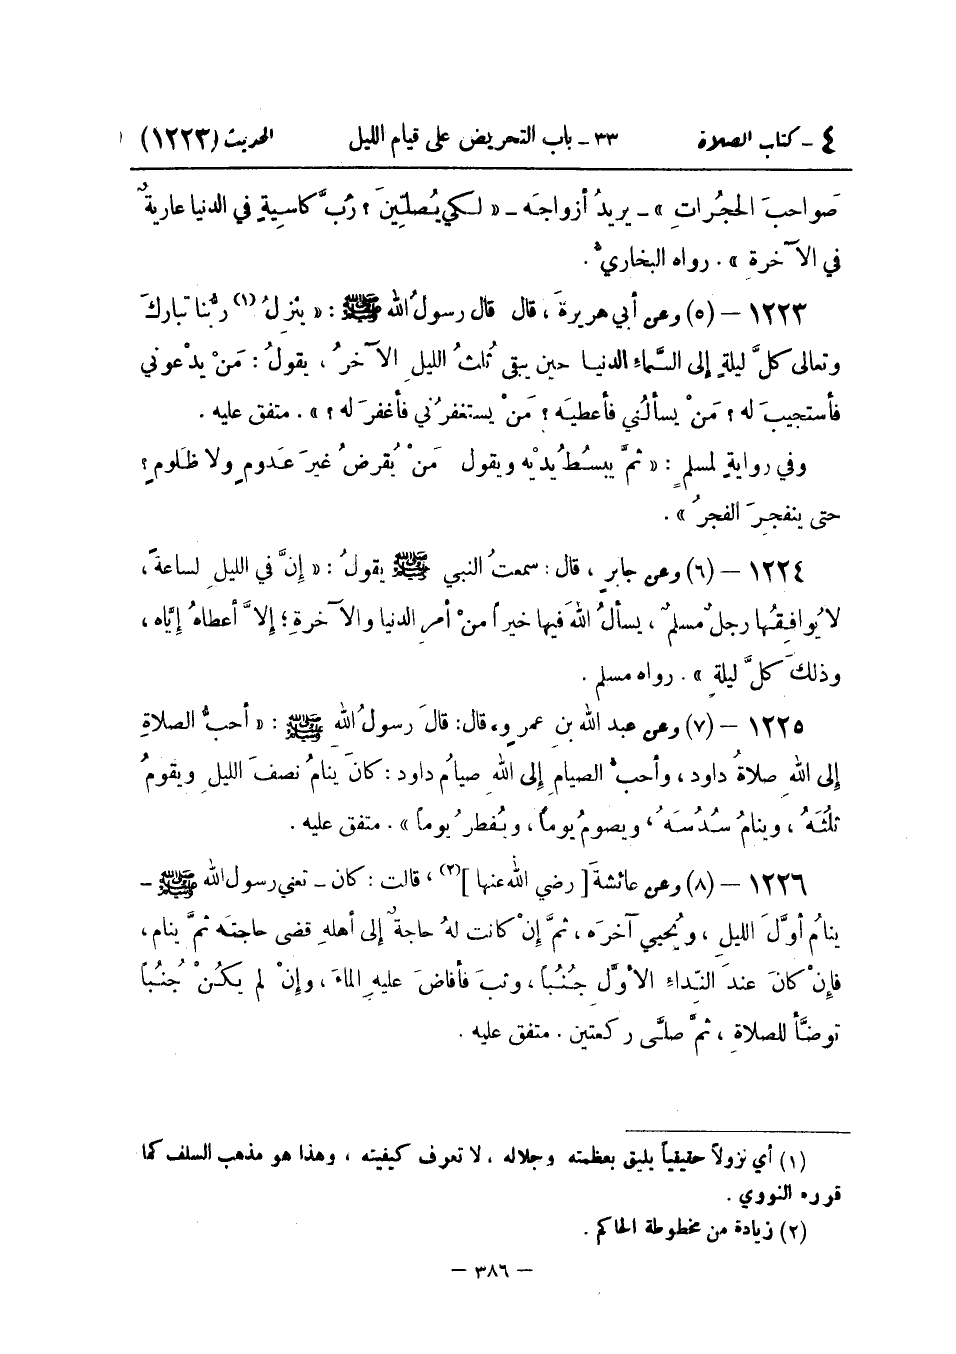 ٤ - كتاب الصلاة ٣٣ - باب التحريض على قيام الليل الحديث (١٢٢٣)
صَواحبَ الحجُراتِ » - يريدُ أزواجَه - « لكي يُصلِّينَ ؟ رُبَّ كاسيةٍ في الدنيا عاريةٌ
في الآخرةِ » . رواه البخاريُّ .
١٢٢٣ - (٥) وعن أبي هريرةَ ، قال قال رسولُ الله ﷺ : « ينْزلُ (١) ربُّنا تباركَ
وتعالى كلَّ ليلةٍ إلى السَّماءِ الدنيا حين يبقى ثُلثُ الليلِ الآخرُ ، يقولُ : مَنْ يدْعوني
فأستجيبَ له ؟ مَنْ يسألُني فأعطيَه ؟ مَنْ يستغفرُني فأغفرَ له ؟ » . متفق عليه .
وفي روايةٍ لمسلمٍ : « ثمَّ يبسُطُ يديْه ويقول مَنْ يُقرضُ غيرَ عَدومٍ ولا ظَلومٍ ؟
حتى ينفجرَ الفجرُ » .
١٢٢٤ - (٦) وعن جابرٍ ، قال : سمعتُ النبي ﷺ يقولُ : « إنَّ في الليلِ لساعةً ،
لا يُوافقُها رجلٌ مسلمٌ ، يسألُ اللهَ فيها خيراً منْ أمرِ الدنيا والآخرةِ ؛ إلاَّ أعطاهُ إيَّاه ،
وذلكَ كلَّ ليلةٍ » . رواه مسلم .
١٢٢٥ - (٧) وعن عبد الله بن عمرٍو ، قال : قالَ رسولُ الله ﷺ : « أحبُّ الصلاةِ
إلى اللهِ صلاةُ داود ، وأحبُّ الصيامِ إلى اللهِ صيامُ داود : كانَ ينامُ نصفَ الليلِ ويقومُ
ثلُثَهُ ، وينامُ سُدُسَهُ ، ويصومُ يوماً ، ويُفطرُ يوماً » . متفق عليه .
١٢٢٦ - (٨) وعن عائشةَ [ رضي الله عنها ] (٢) ، قالت : كان - تعني رسول الله ﷺ -
ينامُ أوَّلَ الليلِ ، ويُحيي آخرَه ، ثمَّ إنْ كانت لهُ حاجةٌ إلى أهلهِ قضى حاجتَه ثمَّ ينام ،
فإنْ كانَ عندَ النِّداءِ الأوَّلِ جُنُباً ، وثبَ فأفاضَ عليهِ الماءَ ، وإنْ لم يكُنْ جُنُباً
توضَّأَ للصلاةِ ، ثمَّ صلَّى ركعتين . متفق عليه .
(١) أي نزولاً حقيقياً يليق بعظمته وجلاله ، لا تعرف كيفيته ، وهذا هو مذهب السلف كما
قرره النووي .
(٢) زيادة من مخطوطة الحاكم .
- ٣٨٦ -